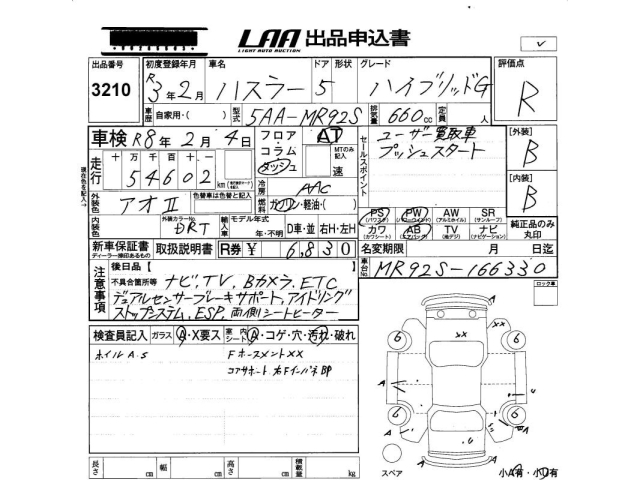 LAA 出品申込書
LIGHT AUTO AUCTION
出品番号 3210
初度登録年月 R3年2月 車名 ハスラー ドア 5 形状 グレード ハイブリッドG 評価点 R
車歴 自家用・( ) 型式 5AA-MR92S 排気量 660cc 定員 人
車検 R8年2月4日 フロア・コラム・ダッシュ AT MTのみ記入 速
セールスポイント ユーザー買取車
プッシュスタート
[外装] B
[内装] B
走行 十万千百十一 54602km
現在色を記入
冷房 AAC
外装色 アオⅡ 色替車は色替と記入
燃料 ガソリン・軽油・( )
内装色 外装カラーNo. DRT 輸入車 モデル年式 年・不明 D車・並 右H・左H
PS (パワステ) PW (パワーウィンド) AW (アルミ) SR (サンルーフ)
カワ (カワシート) AB (エアバック) TV (地デジ) ナビ (ナビゲーション)
純正品のみ丸印
新車保証書 ディーラー捺印あるもの 取扱説明書 R券 ¥ 6,830 名変期限 月 日迄
車台No. MR92S-166330
ロック車
注意事項 後日品【 】
不具合箇所等 ナビ,TV,Bカメラ,ETC
デュアルセンサーブレーキサポート,アイドリング
ストップシステム,ESP,両側シートヒーター
検査員記入 ガラス A・X要ス 室内シート A・コゲ・穴・汚れ・破れ
ホイルA.S Fホースメント××
コアサポート右Fインパネ即
××
6 6
6 6
A A A A
U S
スペア 小A有・小U有
長さ cm 幅 cm 高さ cm 積載量 kg